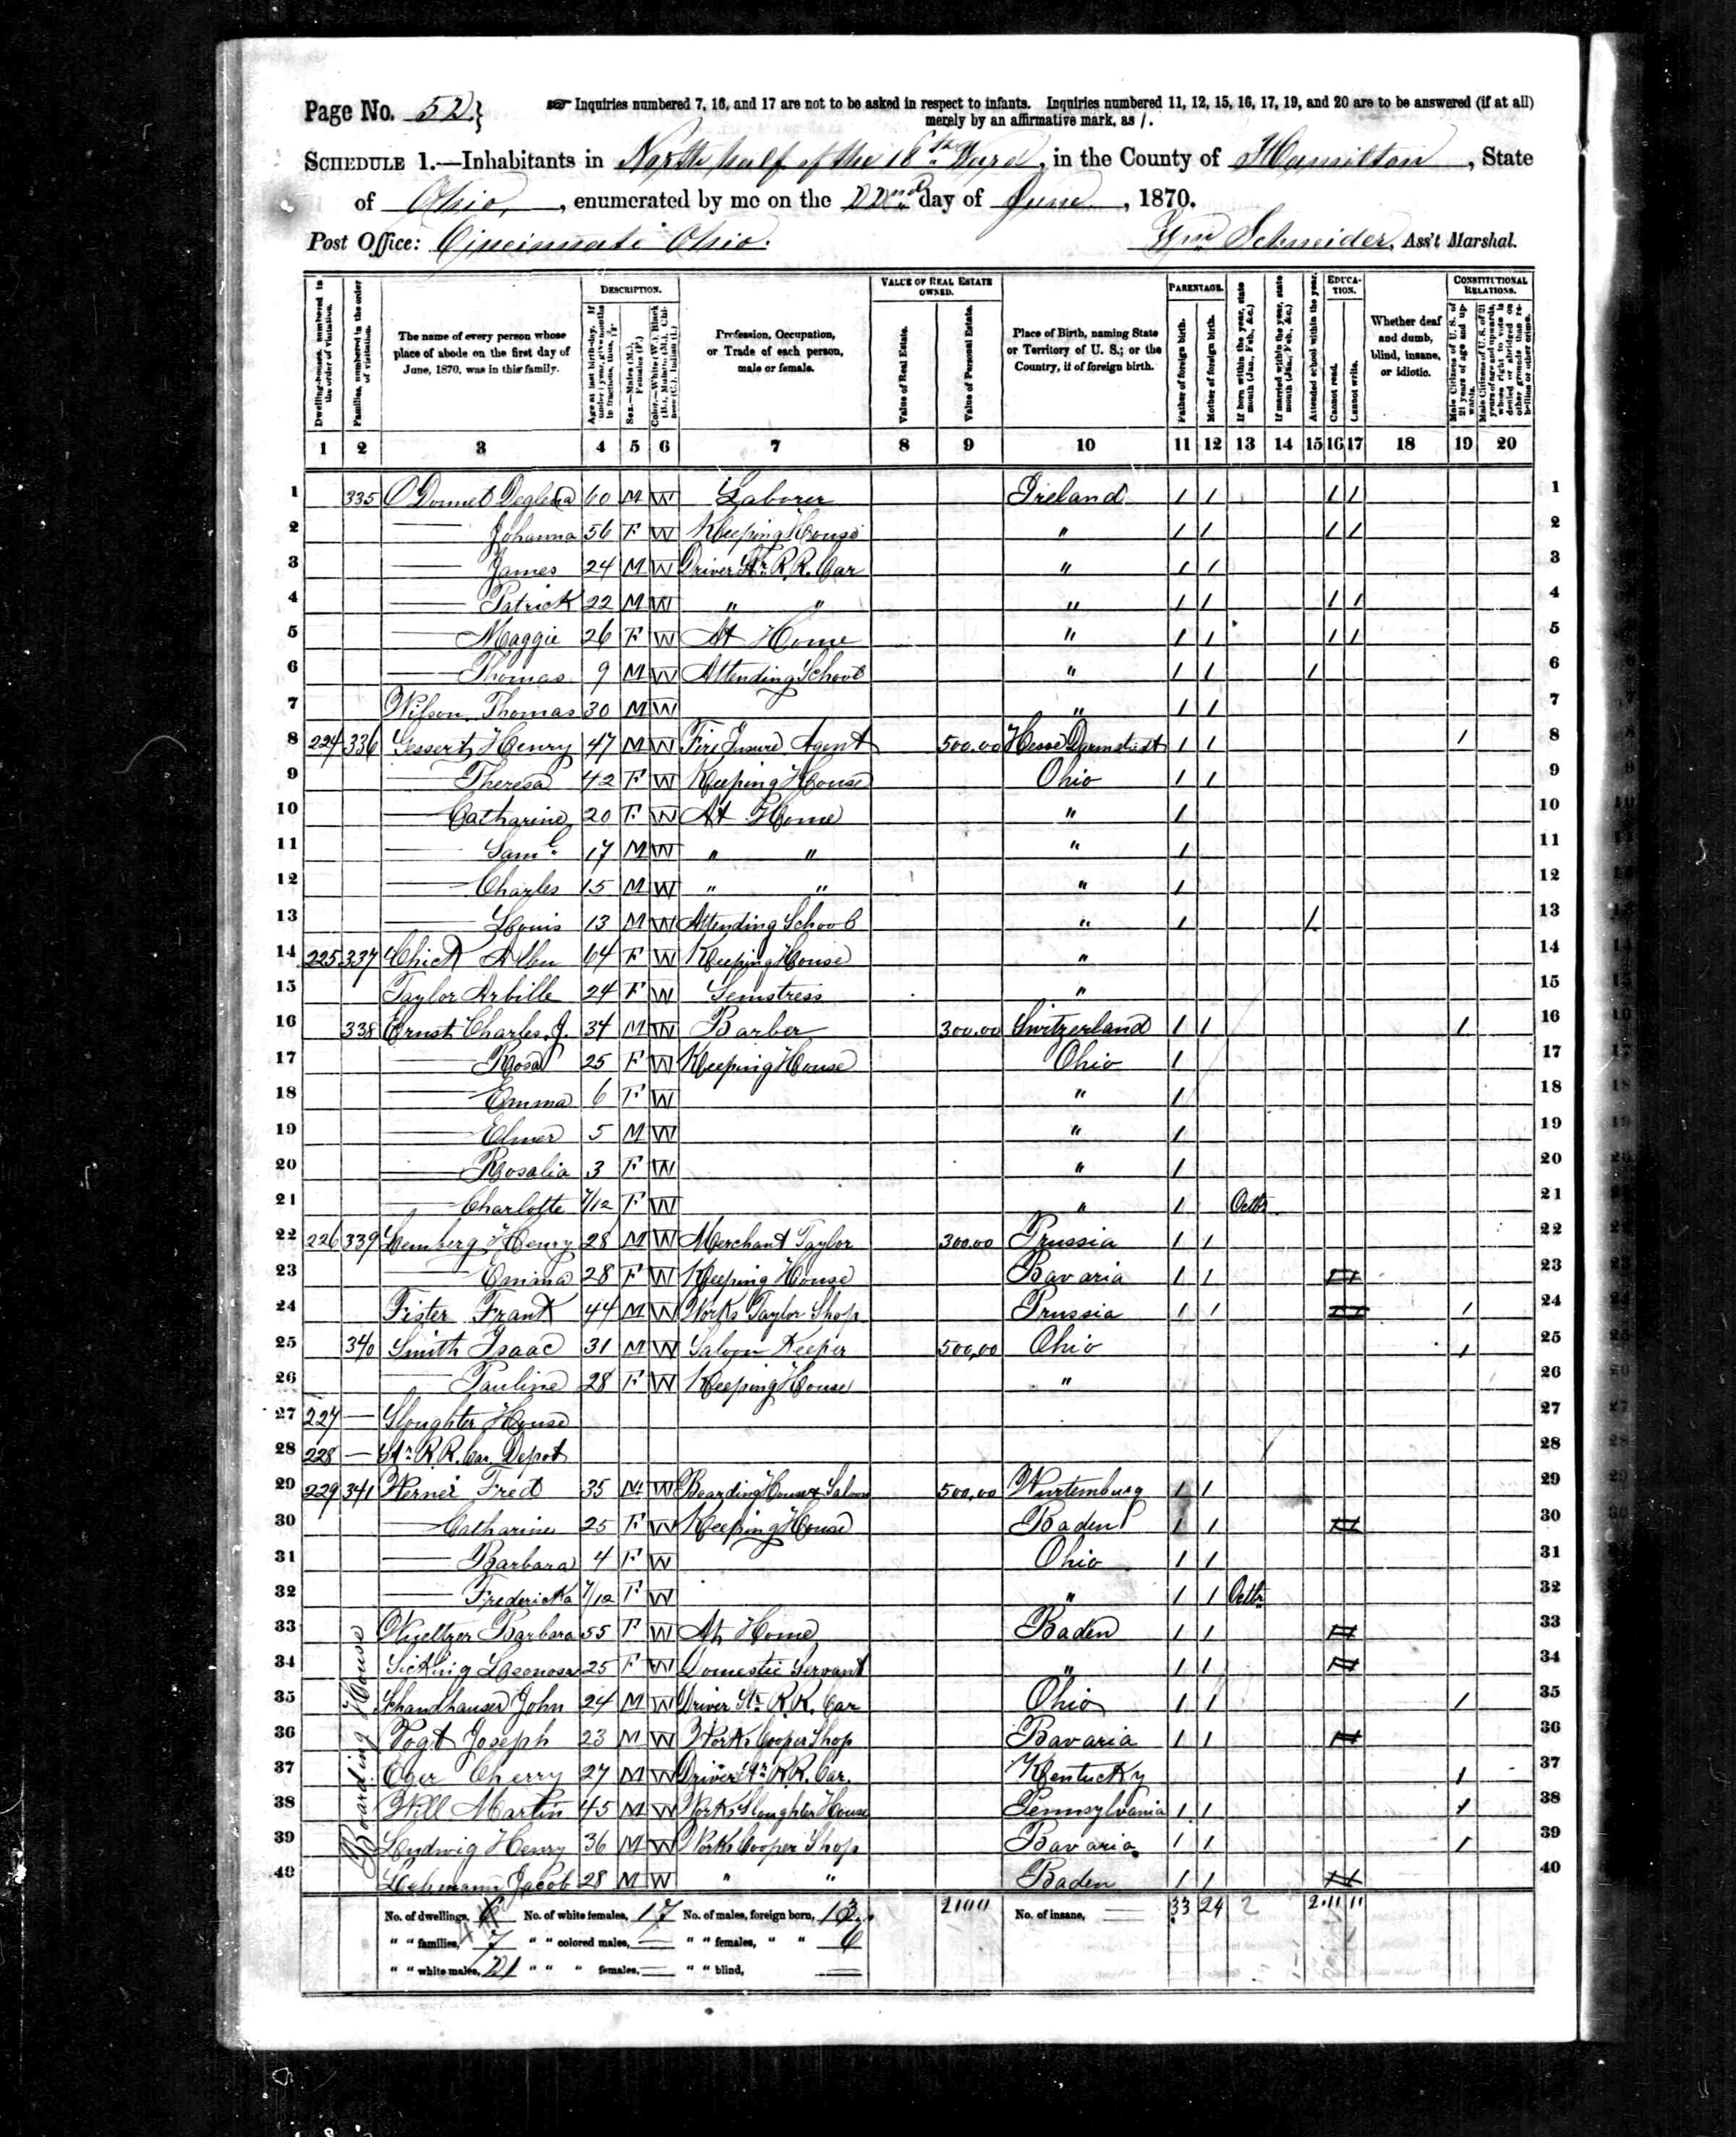 Page No. 52.}
☞ Inquiries numbered 7, 16, and 17 are not to be asked in respect to infants. Inquiries numbered 11, 12, 15, 16, 17, 19, and 20 are to be answered (if at all)
merely by an affirmative mark, as /.
SCHEDULE 1.—Inhabitants in North half of the 16th Ward, in the County of Hamilton, State
of Ohio, enumerated by me on the 22nd day of June, 1870.
Post Office: Cincinnati Ohio.
Wm Schneider, Ass't Marshal.
Dwelling-houses, numbered in the order of visitation.
Families, numbered in the order of visitation.
The name of every person whose place of abode on the first day of June, 1870, was in this family.
DESCRIPTION.
Age at last birth-day. If under 1 year, give months in fractions, thus, 3/12
Sex.—Males (M.), Females (F.)
Color.—White (W.), Black (B.), Mulatto (M.), Chinese (C.), Indian (I.)
Profession, Occupation, or Trade of each person, male or female.
VALUE OF REAL ESTATE OWNED.
Value of Real Estate.
Value of Personal Estate.
Place of Birth, naming State or Territory of U. S.; or the Country, if of foreign birth.
PARENTAGE.
Father of foreign birth.
Mother of foreign birth.
If born within the year, state month (Jan., Feb., &c.)
If married within the year, state month (Jan., Feb., &c.)
Attended school within the year.
EDUCATION.
Cannot read.
Cannot write.
Whether deaf and dumb, blind, insane, or idiotic.
CONSTITUTIONAL RELATIONS.
Male Citizens of U. S. of 21 years of age and upwards.
Male Citizens of U. S. of 21 years of age and upwards, whose right to vote is denied or abridged on other grounds than rebellion or other crime.
1 2 3 4 5 6 7 8 9 10 11 12 13 14 15 16 17 18 19 20
1 335 O Donnel 60 M W Laborer Ireland / / / / 1
2 —— Johanna 56 F W Keeping House " / / / / 2
3 —— James 24 M W Driver Str R.R. Car " / / 3
4 —— Patrick 22 M W " " " / / / / 4
5 —— Maggie 26 F W At Home " / / / / 5
6 —— Thomas 9 M W Attending School " / / / 6
7 Wilson Thomas 30 M W " / / 7
8 224 336 Gessert Henry 47 M W Fire Insure Agent 500.00 Hesse Darmstadt / / / 8
9 —— Theresa 42 F W Keeping House Ohio / / 9
10 —— Catharine 20 F W At Home " / 10
11 —— Saml. 17 M W " " " / 11
12 —— Charles 15 M W " " " / 12
13 —— Louis 13 M W Attending School " / / 13
14 225 337 Chick 64 F W Keeping House " 14
15 Taylor Arbille 24 F W Semstress " 15
16 338 Ernst Charles J. 34 M W Barber 300.00 Switzerland / / / 16
17 —— Rosa 25 F W Keeping House Ohio / 17
18 —— Emma 6 F W " / 18
19 —— Elmer 5 M W " / 19
20 —— Rosalia 3 F W " / 20
21 —— Charlotte 7/12 F W " / Octbr 21
22 226 339 Lemberg Henry 28 M W Merchant Taylor 300.00 Prussia / / 22
23 —— Emma 28 F W Keeping House Bavaria / / 23
24 Fister Frank 44 M W Works Taylor Shop Prussia / / / 24
25 340 Smith Isaac 31 M W Saloon Keeper 500.00 Ohio / 25
26 —— Pauline 28 F W Keeping House " 26
27 227 — Sloughter House 27
28 228 — Str. R.R. Car Depot 28
29 229 341 Werner Fred 35 M W Boarding House & Saloon 500.00 Wurtemburg / / 29
30 —— Catharine 25 F W Keeping House Baden / / 30
31 —— Barbara 4 F W Ohio / / 31
32 —— Fredericka 7/12 F W " / / Octbr 32
Boarding House
33 Barbara 55 F W At Home Baden / / 33
34 Sicking 25 F W Domestic Servant " / / 34
35 Schandhauser John 24 M W Driver Str. R.R. Car Ohio / / / 35
36 Vogt Joseph 23 M W Works Cooper Shop Bavaria / / 36
37 Oger Cherry 27 M W Driver Str R.R. Car. Kentucky / 37
38 Will Martin 45 M W Works Sloughter House Pennsylvania / / / 38
39 Ludwig Henry 36 M W Works Cooper Shop Bavaria / / / 39
40 Lehmann Jacob 28 M W " " Baden / / 40
No. of dwellings, 6 No. of white females, 17 No. of males, foreign born, 13 2100 No. of insane, —— 33 24 2 2 11 11
" " families, 7 " " colored males, —— " " females, " " 6
" " white males, 21 " " " females, —— " " blind, ——